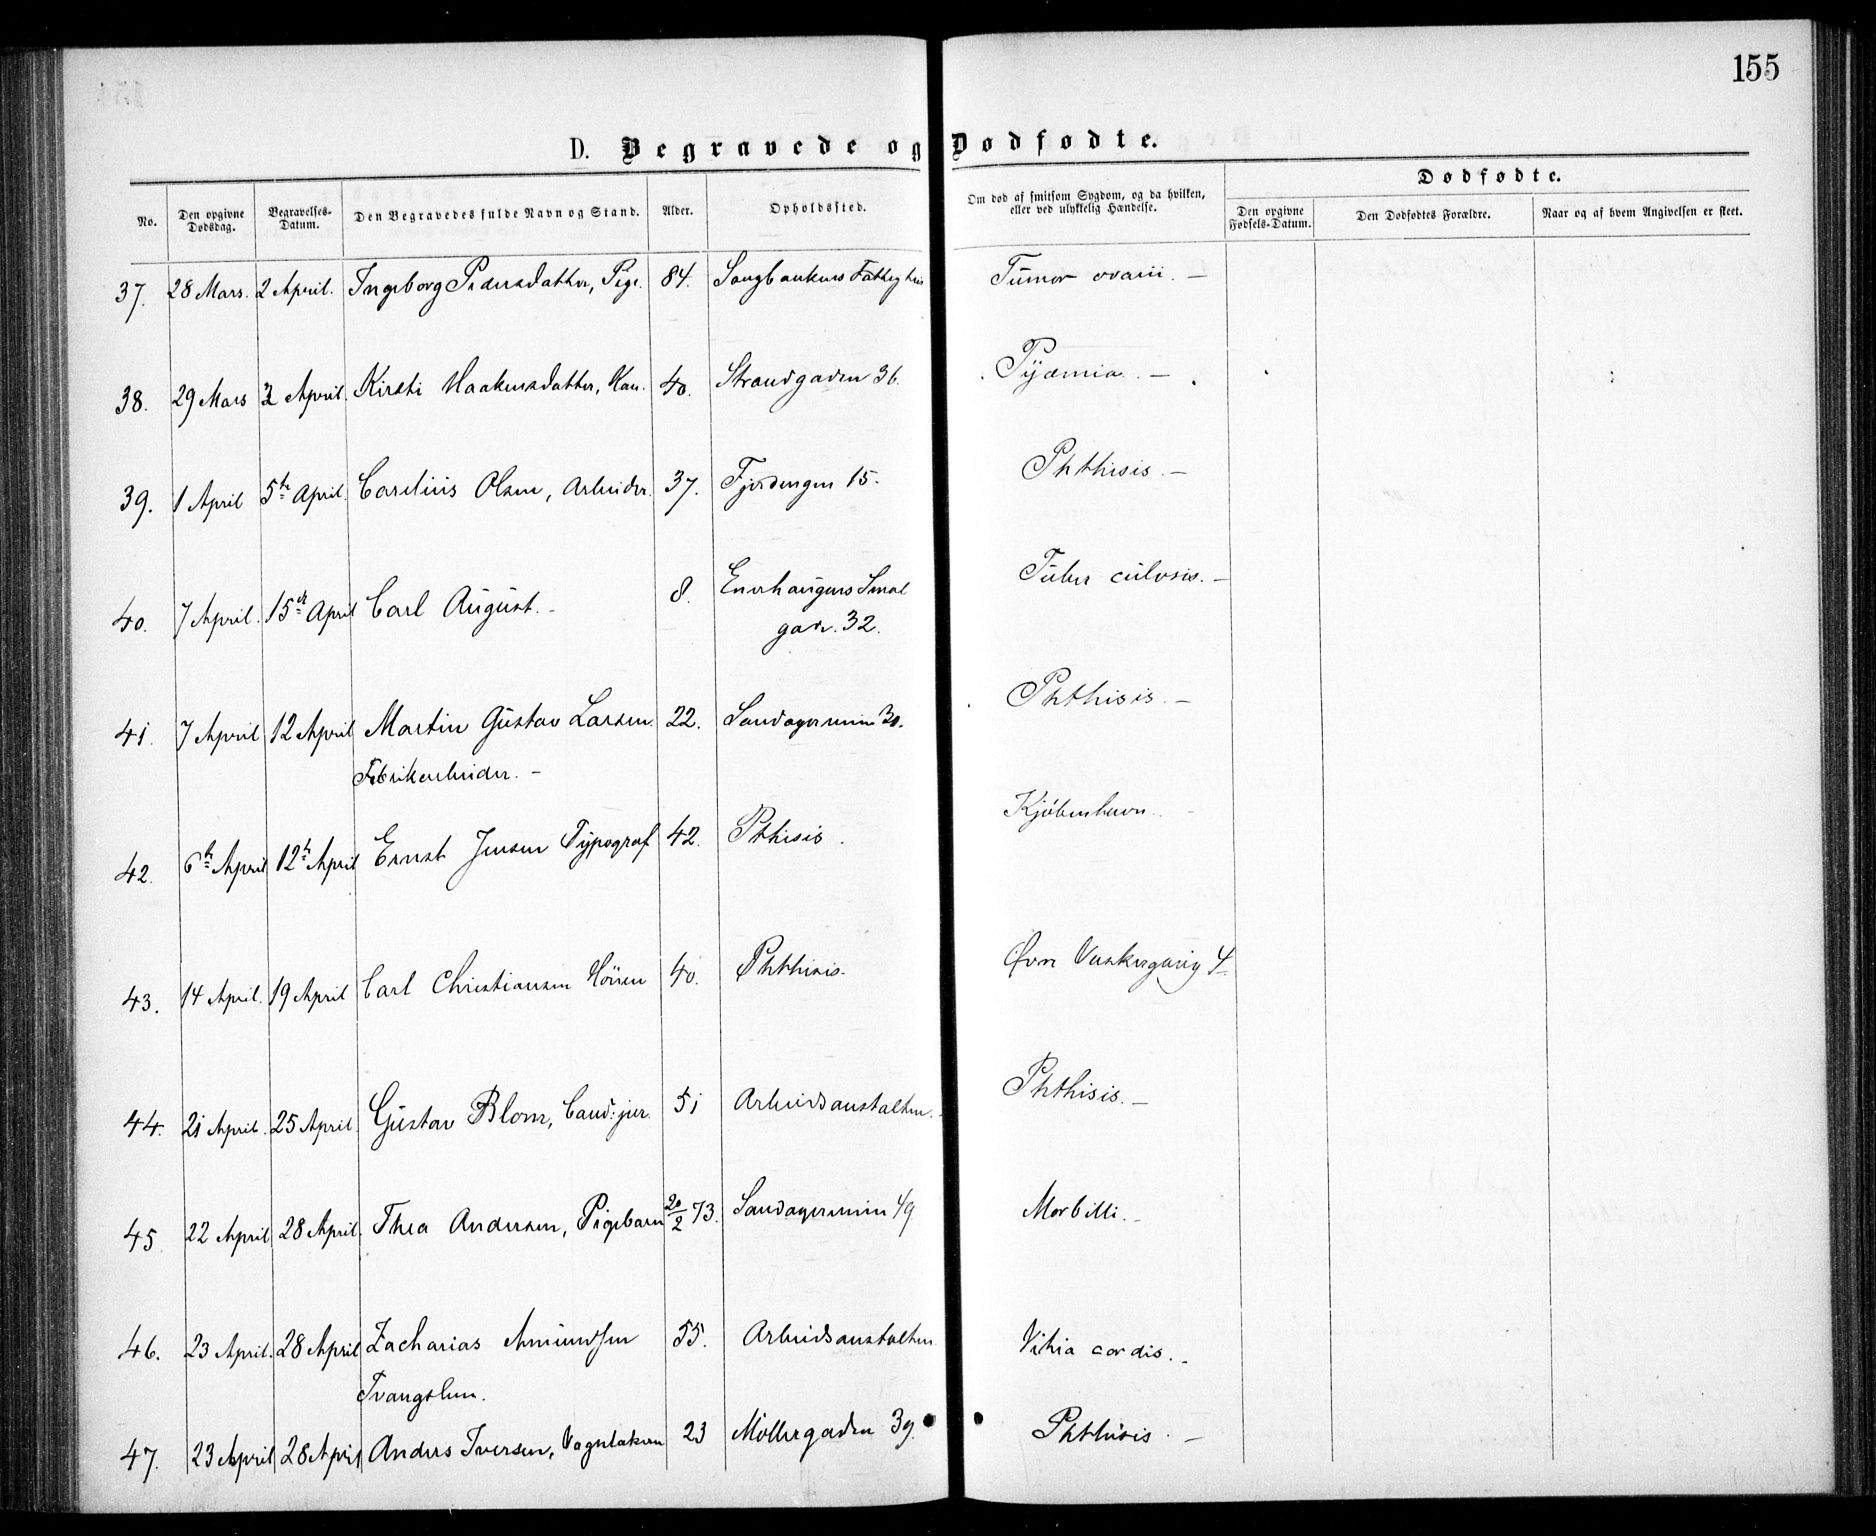 155
D. Begravede og Dødfødte.
No. Den opgivne Dødsdag. Begravelses-Datum. Den Begravedes fulde Navn og Stand. Alder. Opholdssted. Om død af smitsom Sygdom, og da hvilken, eller ved ulykkelig Hændelse. Dødfødte. Den opgivne Fødsels-Datum. Den Dødfødtes Forældre. Naar og af hvem Angivelsen er skeet.
37. 28 Mars. 2 April. Ingeborg Pedersdatter, Pige. 84. Sougbankens Fattighus Tumor ovarii. —
38. 29 Mars April. Kirsti Haakensdatter, 40. Strandgaden 36. Pyæmia. —
39. 1 April 5te April. Carelius Olsen, Arbeider. 37. Fjerdengen 15. Phthisis. —
40. 7 April. 15de April Carl August. — 8. Enerhaugens Smal
gade. 32. Tuberculosis. —
41. 7 April 12 April Martin Gustav Larsen. 22. Sandagerveien 30. Phthisis. —
Fabrikarbeider. —
42. 6te April 12te April Ernst Jensen Typograf 42. Phthisis. Kjøbenhavn. —
43. 14 April. 19 April Carl Christiansen 40. Phthisis. Øvre Vaskegang 4
44. 21 April. 25 April. Gustav Blom, Cand: jur. 51 Arbeidsanstalten. — Phthisis. —
45 22 April 28 April. Thea Andersen, Pigebarn 20/2 73. Sandagerveien 49 Morbilli. —
46. 23 April. 28 April Zacharias Amundsen 55. Arbeidsanstalten Vitia cordis. —
Tvangslem.
47. 23 April 28 April Anders Iversen, 23 Møllergaden 39. Phthisis. —